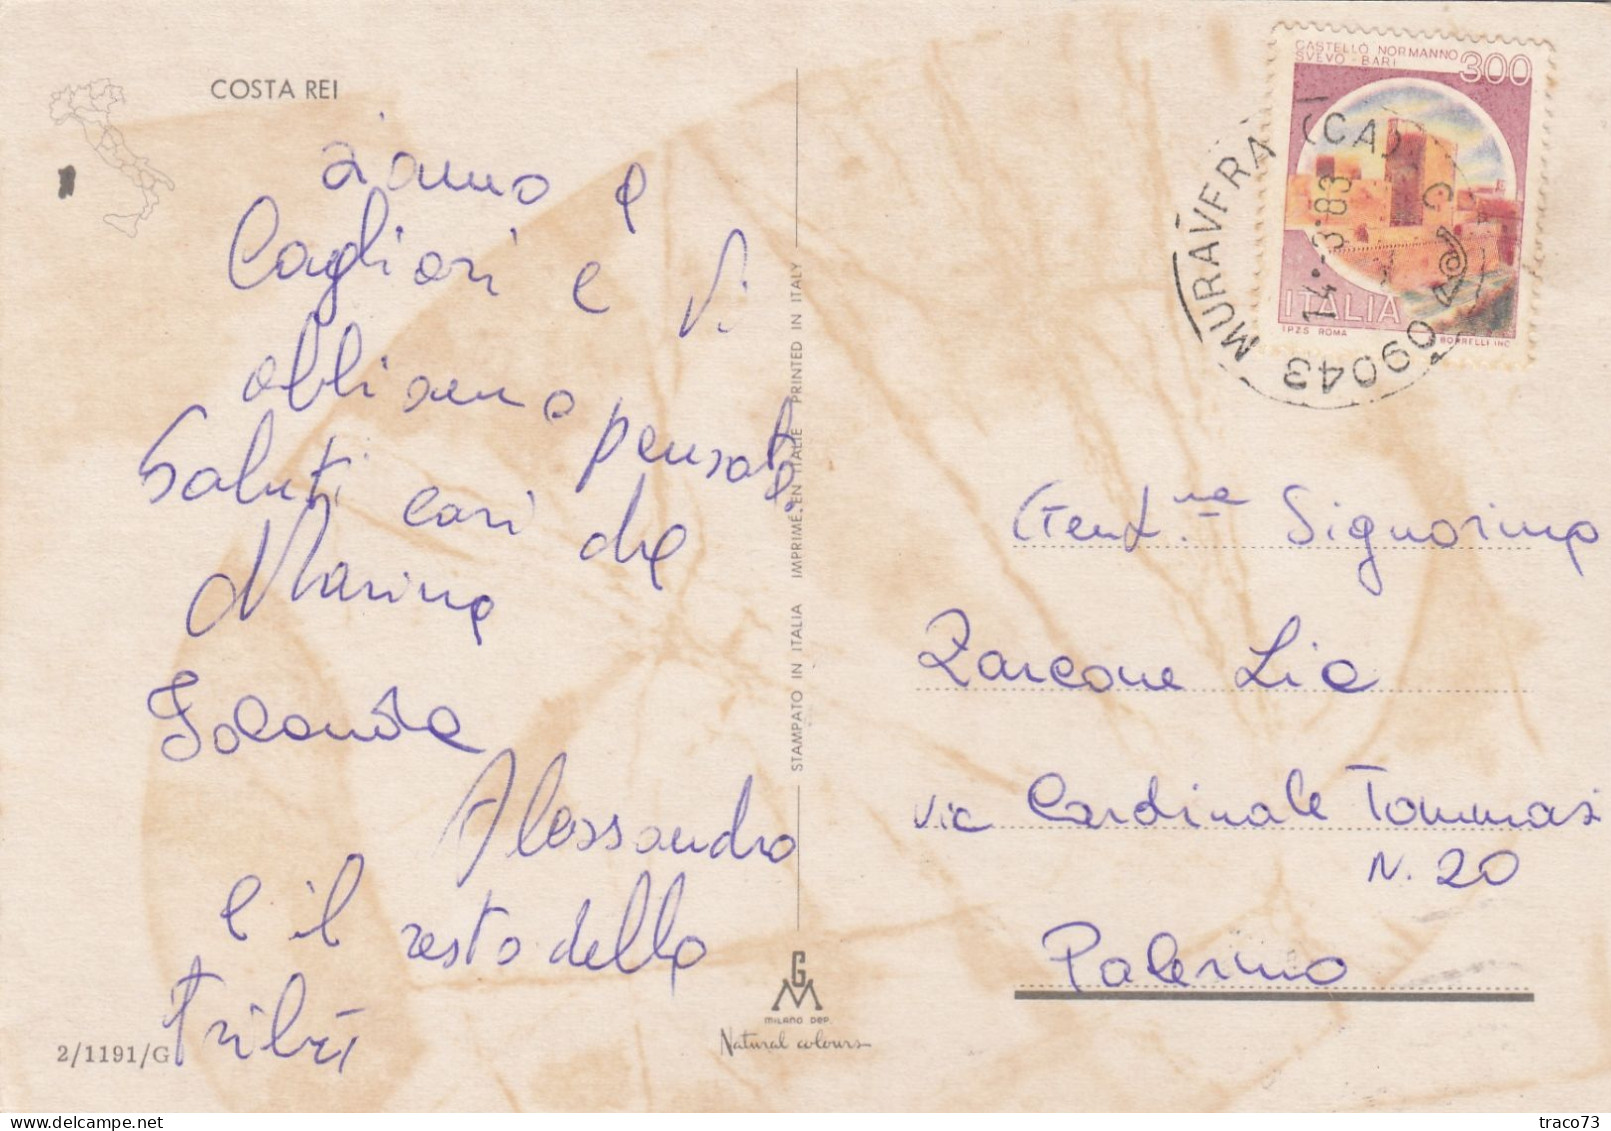 COSTA REI
siamo a
Cagliari e vi
abbiamo pensato
Saluti cari da
Marina
Iolanda
Alessandro
e il resto della
Tribù
2/1191/G
STAMPATO IN ITALIA IMPRIMÉ EN ITALIE PRINTED IN ITALY
GM
MILANO DEP.
Natural colours
CASTELLO NORMANNO
SVEVO - BARI
300
ITALIA
I.P.Z.S. ROMA
BORRELLI INC.
09043 MURAVERA (CA)
14.-3.83
Gent.ma Signorina
Zarcone Lia
via Cardinale Tommasi
N. 20
Palermo
traco73